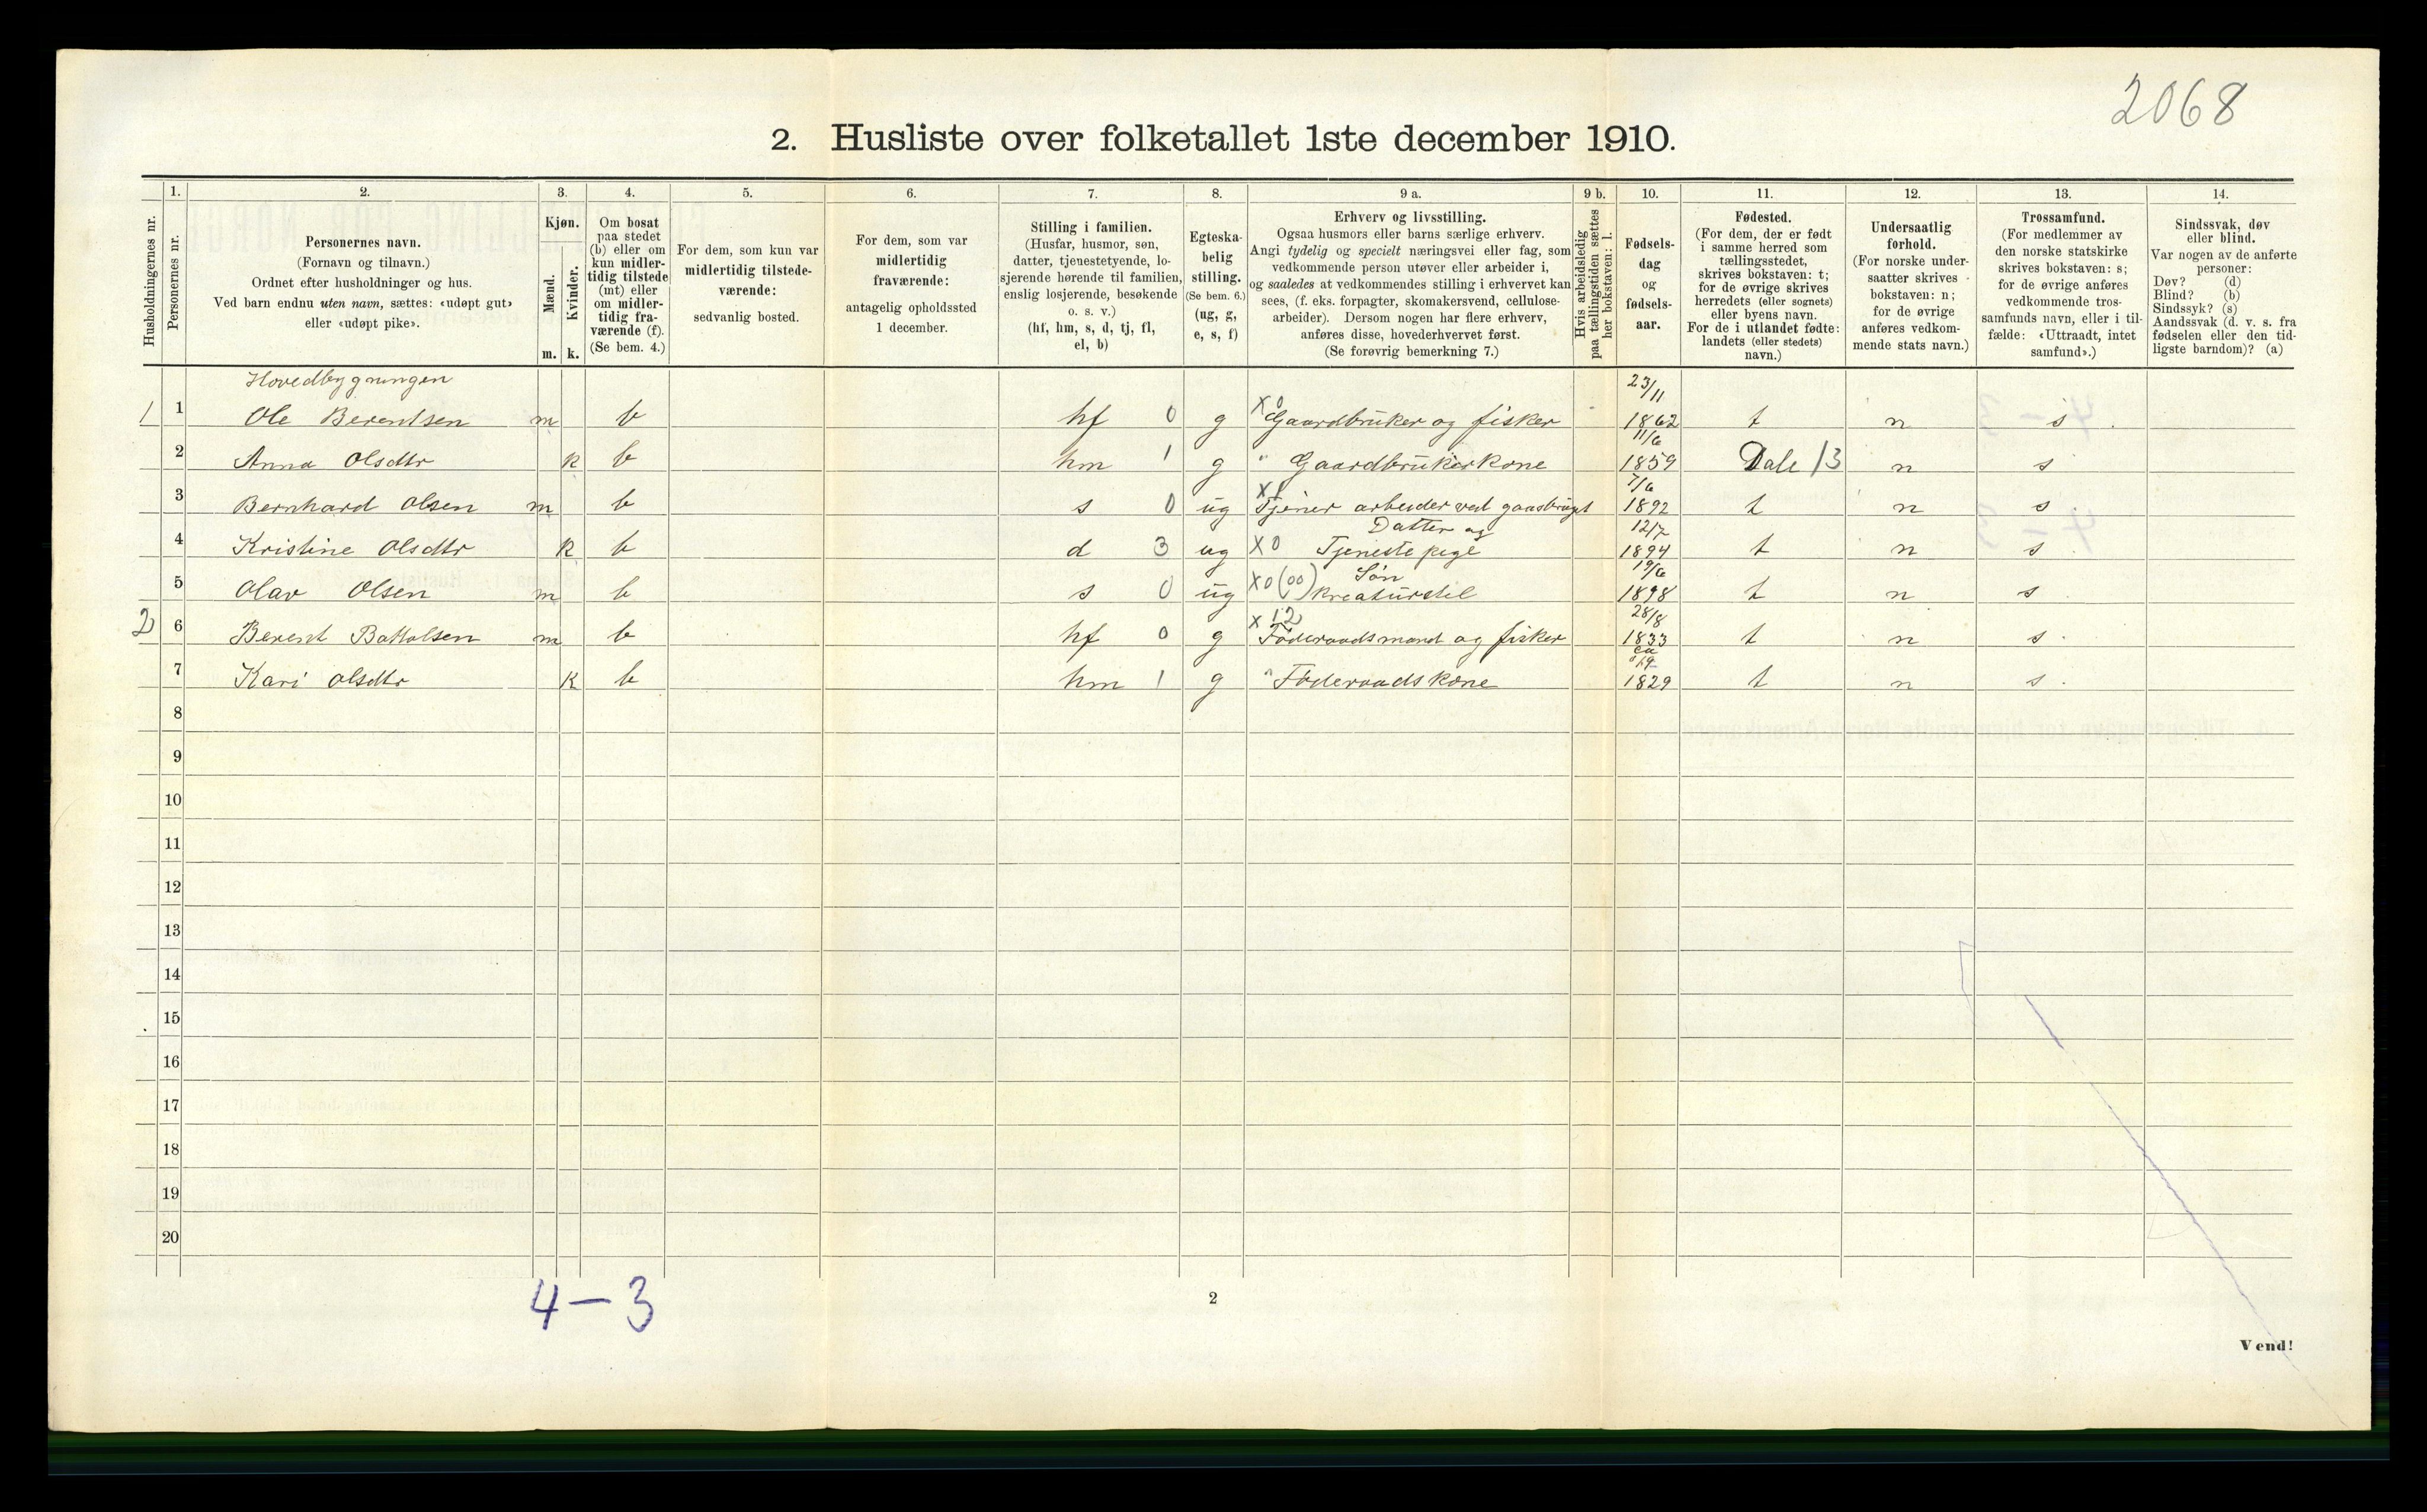 2068
2. Husliste over folketallet 1ste december 1910.
Husholdningernes nr.
1.
Personernes nr.
2.
Personernes navn.
(Fornavn og tilnavn.)
Ordnet efter husholdninger og hus.
Ved barn endnu uten navn, sættes: «udøpt gut»
eller «udøpt pike».
3.
Kjøn.
Mænd.
Kvinder.
m. k.
4.
Om bosat
paa stedet
(b) eller om
kun midler-
tidig tilstede
(mt) eller
om midler-
tidig fra-
værende (f).
(Se bem. 4.)
5.
For dem, som kun var
midlertidig tilstede-
værende:
sedvanlig bosted.
6.
For dem, som var
midlertidig
fraværende:
antagelig opholdssted
1 december.
7.
Stilling i familien.
(Husfar, husmor, søn,
datter, tjenestetyende, lo-
sjerende hørende til familien,
enslig losjerende, besøkende
o. s. v.)
(hf, hm, s, d, tj, fl,
el, b)
8.
Egteska-
belig
stilling.
(Se bem. 6.)
(ug, g,
e, s, f)
9 a.
Erhverv og livsstilling.
Ogsaa husmors eller barns særlige erhverv.
Angi tydelig og specielt næringsvei eller fag, som
vedkommende person utøver eller arbeider i,
og saaledes at vedkommendes stilling i erhvervet kan
sees, (f. eks. forpagter, skomakersvend, cellulose-
arbeider). Dersom nogen har flere erhverv,
anføres disse, hovederhvervet først.
(Se forøvrig bemerkning 7.)
9 b.
Hvis arbeidsledig
paa tællingstiden sættes
her bokstaven: l.
10.
Fødsels-
dag
og
fødsels-
aar.
11.
Fødested.
(For dem, der er født
i samme herred som
tællingsstedet,
skrives bokstaven: t;
for de øvrige skrives
herredets (eller sognets)
eller byens navn.
For de i utlandet fødte:
landets (eller stedets)
navn.)
12.
Undersaatlig
forhold.
(For norske under-
saatter skrives
bokstaven: n;
for de øvrige
anføres vedkom-
mende stats navn.)
13.
Trossamfund.
(For medlemmer av
den norske statskirke
skrives bokstaven: s;
for de øvrige anføres
vedkommende tros-
samfunds navn, eller i til-
fælde: «Uttraadt, intet
samfund».)
14.
Sindssvak, døv
eller blind.
Var nogen av de anførte
personer:
Døv? (d)
Blind? (b)
Sindssyk? (s)
Aandssvak (d. v. s. fra
fødselen eller den tid-
ligste barndom)? (a)
Hovedbygningen
1 1 Ole Berentsen m b hf 0 g X0 Gaardbruker og fisker 23/11 1862 t n s
2 Anna Olsdtr k b hm 1 g " Gaardbrukerkone 11/6 1859 Dale 13 n s
3 Bernhard Olsen m b s 0 ug X1 Tjener arbeider ved gaardbruget 7/6 1892 t n s
4 Kristine Olsdtr k b d 3 ug X0 Datter og Tjenestepige 12/7 1894 t n s
5 Olav Olsen m b s 0 ug X0 (00) Søn kreaturstel 19/6 1898 t n s
2 6 Berent Battolsen m b hf 0 g X 12 Føderaadsmand og fisker 28/8 1833 t n s
7 Kari Olsdtr k b hm 1 g " Føderaadskone ca 1829 t n s
8
9
10
11
12
13
14
15
16
17
18
19
20
4 — 3
2
Vend!